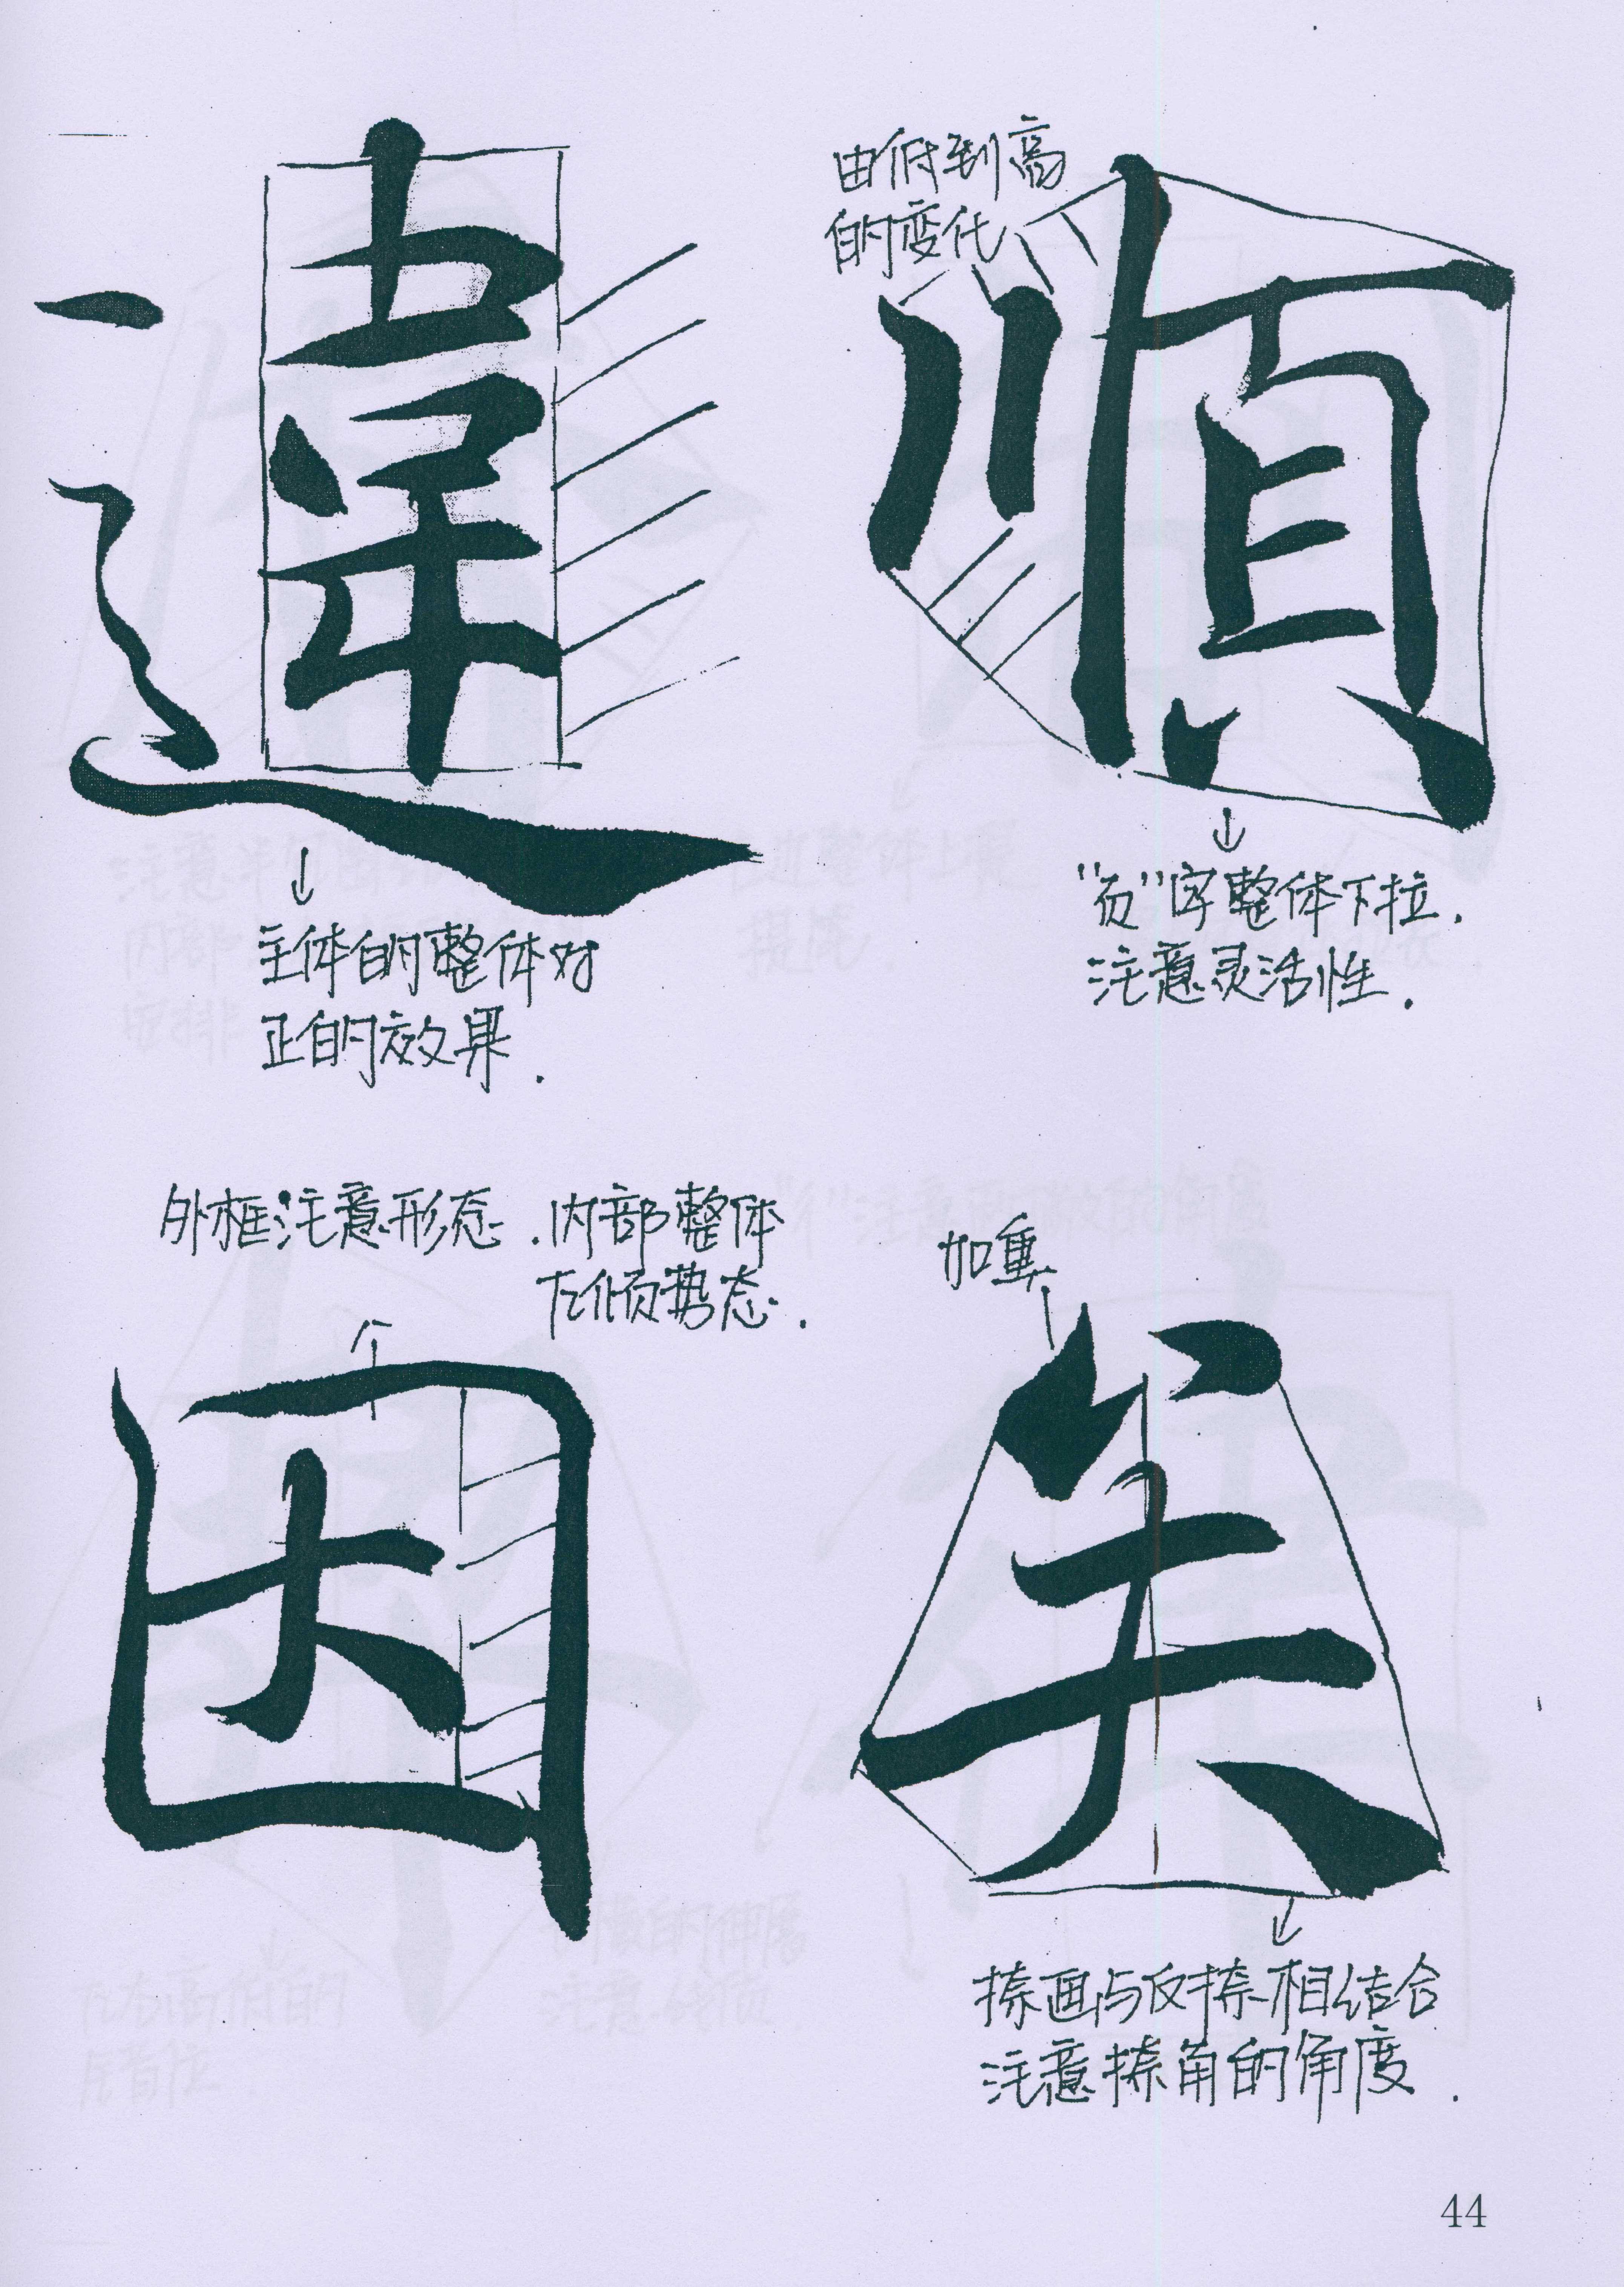 違
主体的整体对
正的效果.
由低到高
的变化
順
"页"字整体下拉.
注意灵活性.
外框注意形态.内部整体
左倾势态.
因
加重
关
捺画与反捺相结合
注意捺角的角度.
44